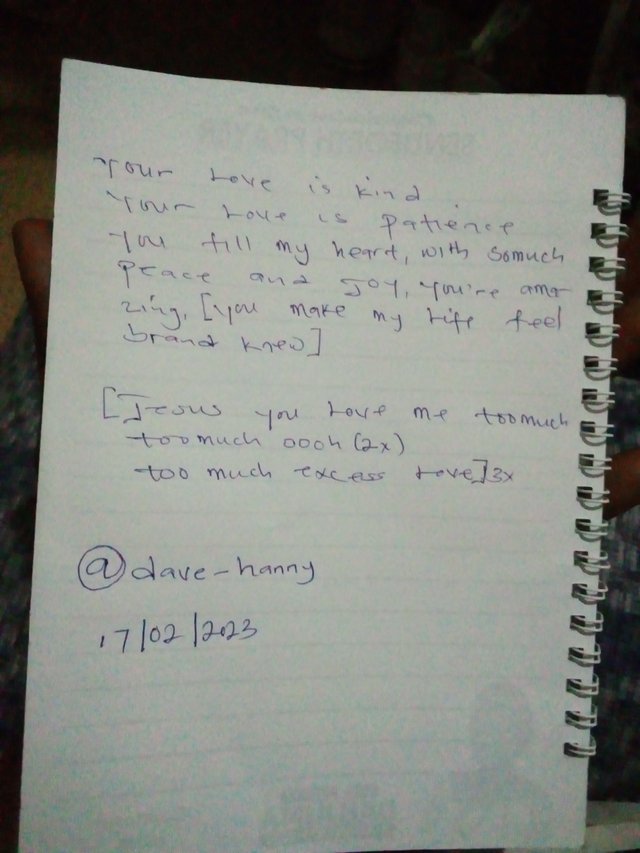 Your Love is kind
Your Love is patience
You fill my heart, with somuch
peace and Joy, you're ama
zing, [you make my life feel
brand knew]
[Jesus you Love me toomuch
too much oooh (2x)
too much excess Love]3x
@dave-hanny
17/02/2023